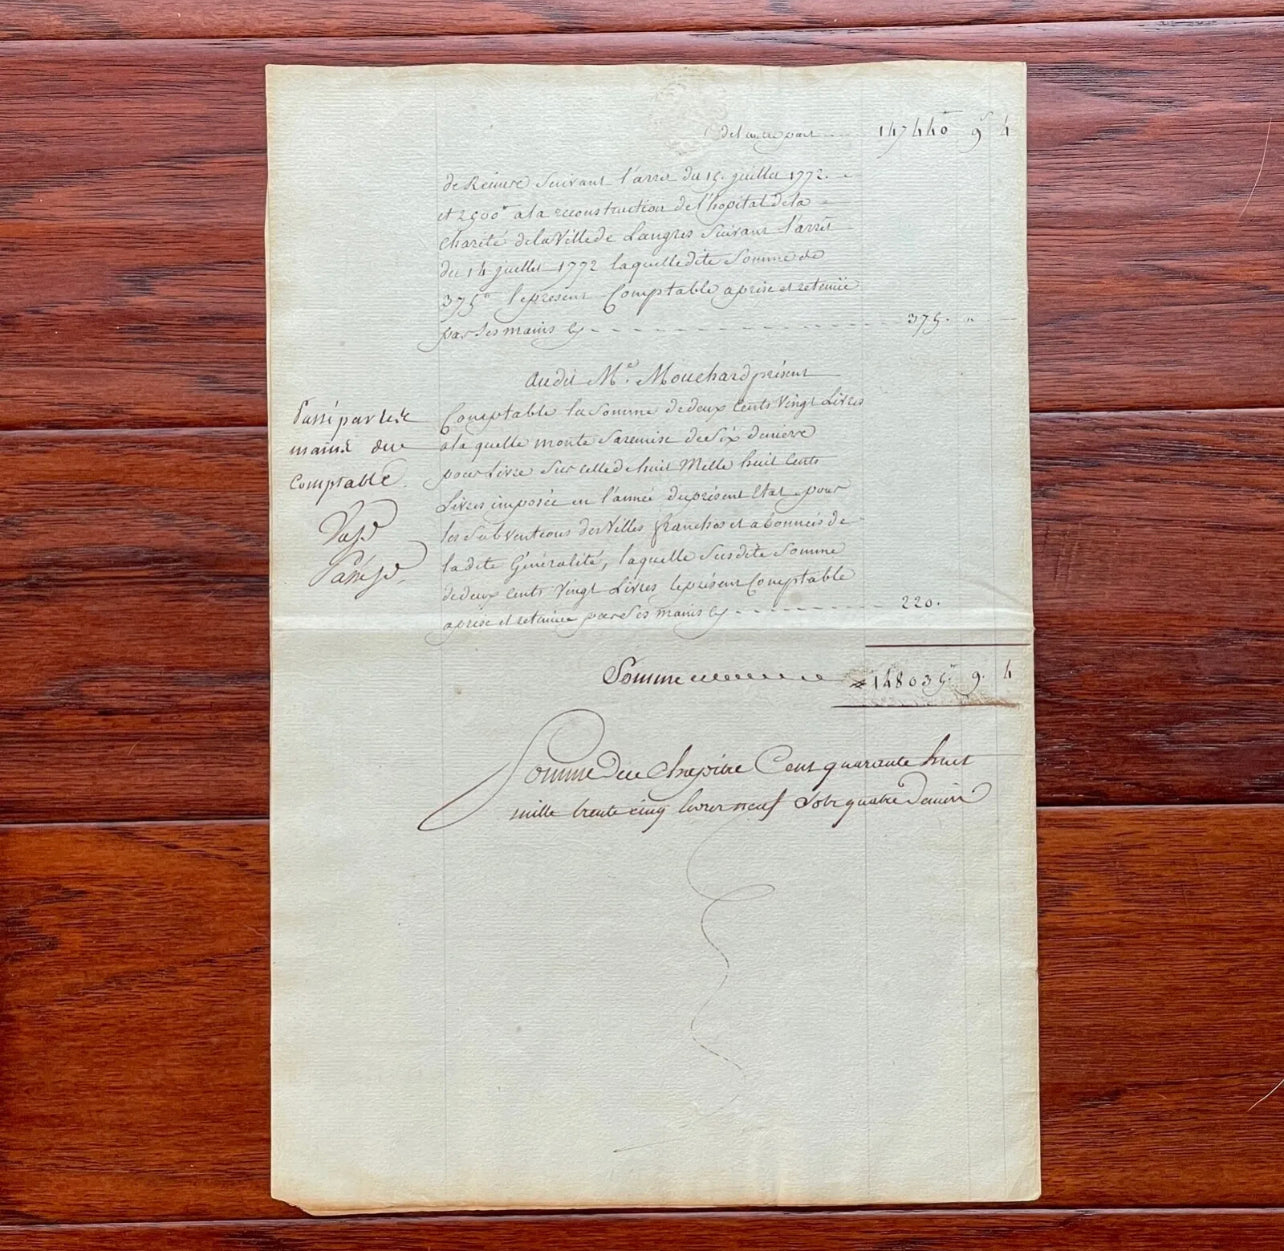 de l'autre part 147440ᵗ 9ˢ 4
de Reims Suivant l'arrêt du 15. juillet 1772.
et 2500ᵗ a la reconstruction de l'hopital de la
Charité de la Ville de Langres Suivant l'arrêt
du 14 juillet 1772 laquelle dite Somme de
375ᵗ le present Comptable a prise et retenüe
par Ses mains Cy 375. "
Audit Mᵉ. Mouchard présent
Comptable la Somme de deux Cents Vingt Livres
a la quelle monte Sa remise de Six deniers
pour Livre Sur celle de huit Mille huit Cents
Livres imposée en l'année du présent Etat pour
les Subventions des Villes franches et abonnées de
la dite Généralité, laquelle Susdite Somme
de deux Cents Vingt Livres le présent Comptable
a prise et retenüe par Ses mains Cy 220.
Passé par les
mains du
Comptable.
Somme 148035ᵗ 9. 4
Somme du Chapitre Cent quarante huit
mille trente cinq livres neuf Sols quatre deniers